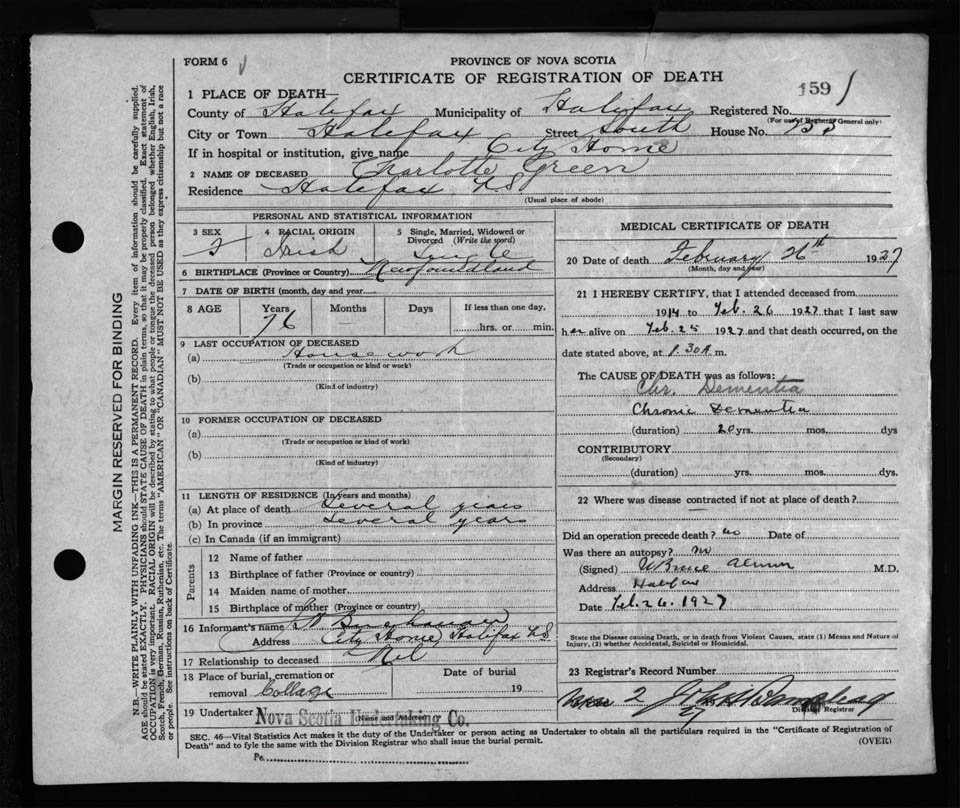 FORM 6
PROVINCE OF NOVA SCOTIA
CERTIFICATE OF REGISTRATION OF DEATH
159
1 PLACE OF DEATH—
County of Halifax Municipality of Halifax Registered No.
(For use of Registrar General only)
City or Town Halifax Street South House No.
If in hospital or institution, give name City Home
2 NAME OF DECEASED Charlotte Green
Residence Halifax, N.S.
(Usual place of abode)
PERSONAL AND STATISTICAL INFORMATION
3 SEX 4 RACIAL ORIGIN 5 Single, Married, Widowed or Divorced (Write the word)
F Irish Single
6 BIRTHPLACE (Province or Country) Newfoundland
7 DATE OF BIRTH (month, day and year)
8 AGE Years Months Days If less than one day,
76 hrs. or min.
9 LAST OCCUPATION OF DECEASED
(a) Housework
(Trade or occupation or kind or work)
(b)
(Kind of industry)
10 FORMER OCCUPATION OF DECEASED
(a)
(Trade or occupation or kind of work)
(b)
(Kind of industry)
11 LENGTH OF RESIDENCE (In years and months)
(a) At place of death Several years
(b) In province Several years
(c) In Canada (if an immigrant)
Parents
12 Name of father
13 Birthplace of father (Province or country)
14 Maiden name of mother
15 Birthplace of mother (Province or country)
16 Informant's name
Address City Home, Halifax N.S.
17 Relationship to deceased Nil
18 Place of burial, cremation or Date of burial
removal College 19
19 Undertaker Nova Scotia Undertaking Co.
(Name and Address)
MEDICAL CERTIFICATE OF DEATH
20 Date of death February 26th 1927
(Month, day and year)
21 I HEREBY CERTIFY, that I attended deceased from
1914 to Feb. 26 1927 that I last saw
her alive on Feb. 25 1927 and that death occurred, on the
date stated above, at 1.30 A.m.
The CAUSE OF DEATH was as follows:
Chr. Dementia
Chronic Dementia
(duration) 20 yrs. mos. dys
CONTRIBUTORY
(Secondary)
(duration) yrs. mos. dys.
22 Where was disease contracted if not at place of death?
Did an operation precede death? no Date of
Was there an autopsy? no
(Signed) W Bruce Almon M.D.
Address Halifax
Date Feb. 26. 1927
State the Disease causing Death, or in death from Violent Causes, state (1) Means and Nature of
Injury, (2) whether Accidental, Suicidal or Homicidal.
23 Registrar's Record Number
2
27
Division Registrar
SEC. 46—Vital Statistics Act makes it the duty of the Undertaker or person acting as Undertaker to obtain all the particulars required in the "Certificate of Registration of
Death" and to fyle the same with the Division Registrar who shall issue the burial permit.
(OVER)
Pe.
MARGIN RESERVED FOR BINDING
N.B.—WRITE PLAINLY WITH UNFADING INK—THIS IS A PERMANENT RECORD. Every item of information should be carefully supplied.
AGE should be stated EXACTLY. PHYSICIANS should STATE CAUSE OF DEATH in plain terms, so that it may be properly classified. Exact statement of
OCCUPATION is very important. RACIAL ORIGIN will be described by stating to what people or tongue the deceased person belonged whether English, Irish,
Scotch, French, German, Russian, Ruthenian, etc. The terms "AMERICAN" OR "CANADIAN" MUST NOT BE USED as they express citizenship but not a race
or people. See instructions on back of Certificate.